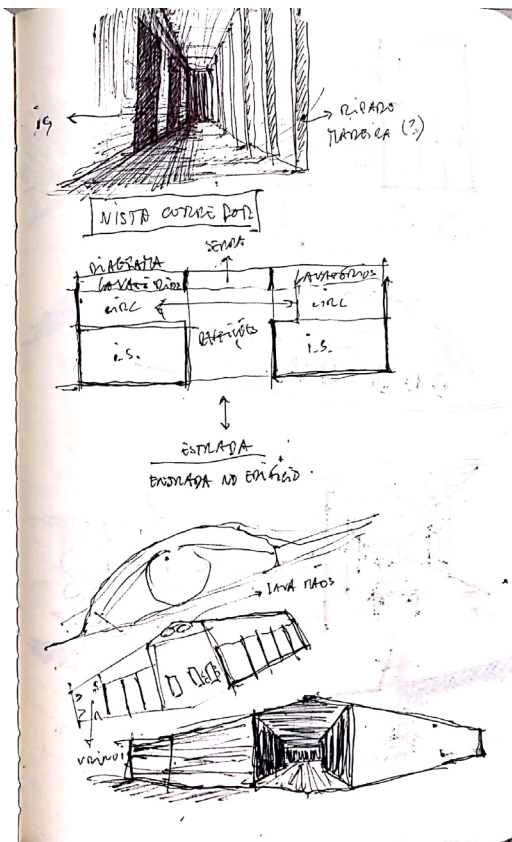 is
RIPADO
MADEIRA (?)
VISTA CORREDOR
SERRA
DIAGRAMA
LAVATÓRIOS
LAVATÓRIOS
CIRC
CIRC
REFEIÇÕES
i.s.
i.s.
ESTRADA
+
ENTRADA NO EDIFÍCIO.
LAVA MÃOS